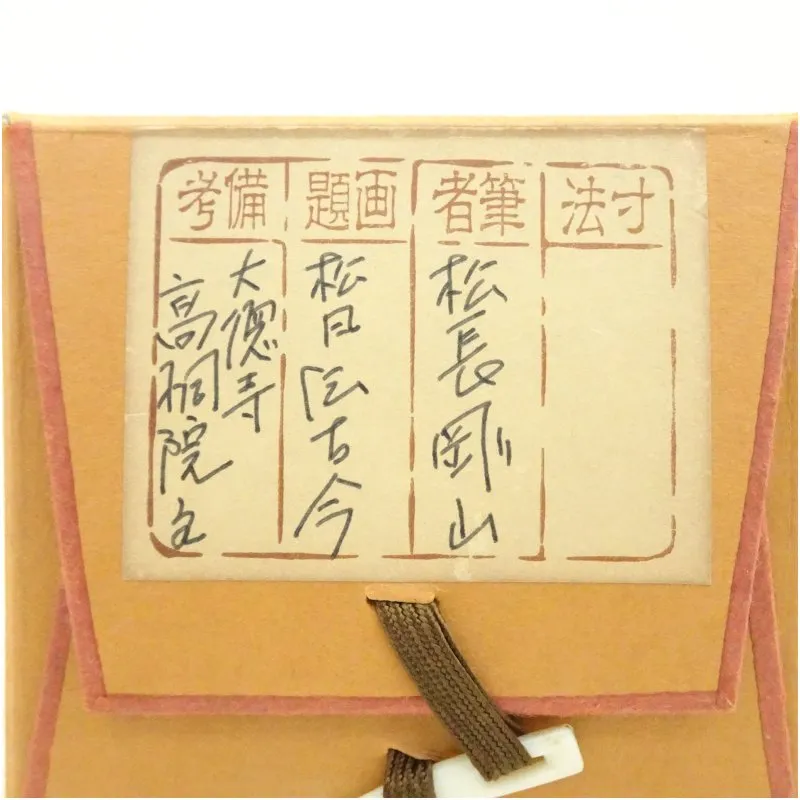 寸法
筆者
松長剛山
画題
松 古今
備考
大徳寺
高桐院主